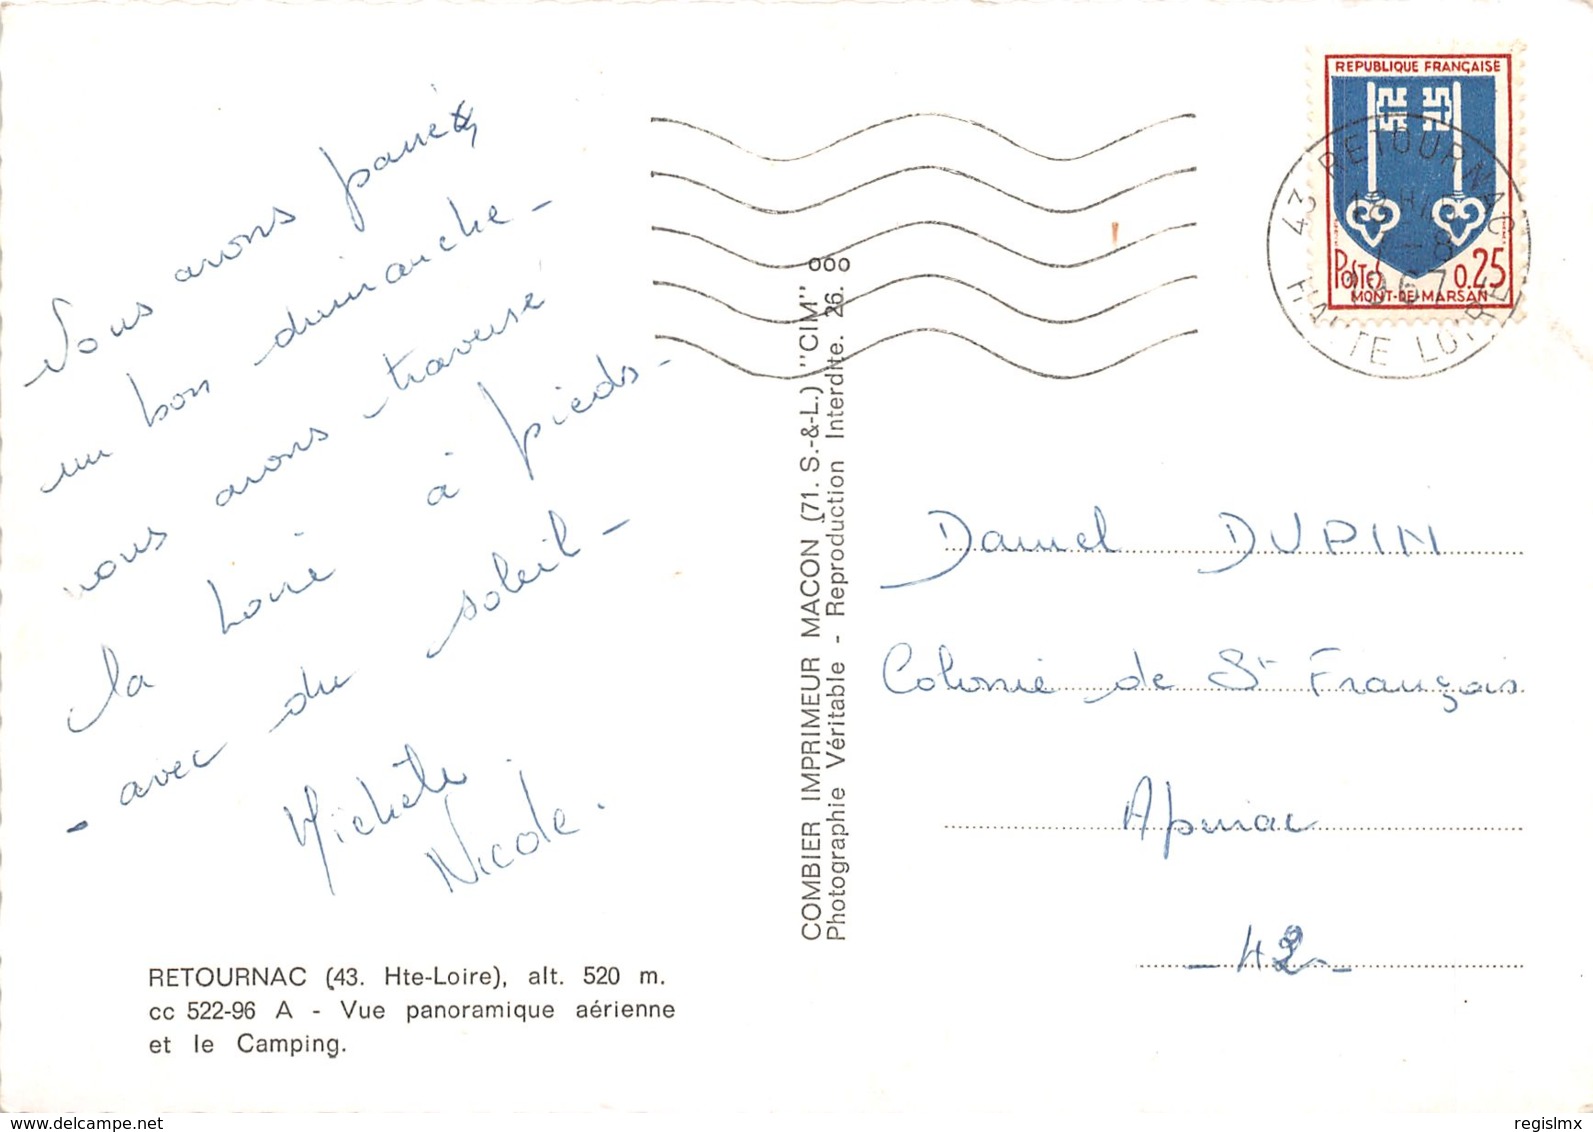 Nous avons passé
un bon dimanche -
nous avons traversé
la Loire à pieds -
- avec du soleil -
Michèle
Nicole.
RETOURNAC (43. Hte-Loire), alt. 520 m.
cc 522-96 A - Vue panoramique aérienne
et le Camping.
COMBIER IMPRIMEUR MACON (71. S.-&-L.) "CIM"
Photographie Véritable - Reproduction Interdite. 26. 000
REPUBLIQUE FRANÇAISE
POSTES 0.25
MONT-DE-MARSAN
43 RETOURNAC
-8
1967
HAUTE LOIRE
Daniel DUPIN
Colonie de St François
Apinac
- 42 -
delcampe.net
regislmx